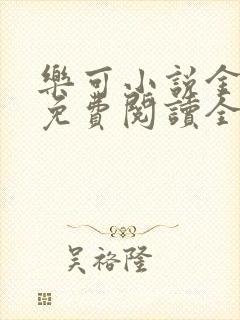 樂可小說全
免費閱讀全
吳裕隆